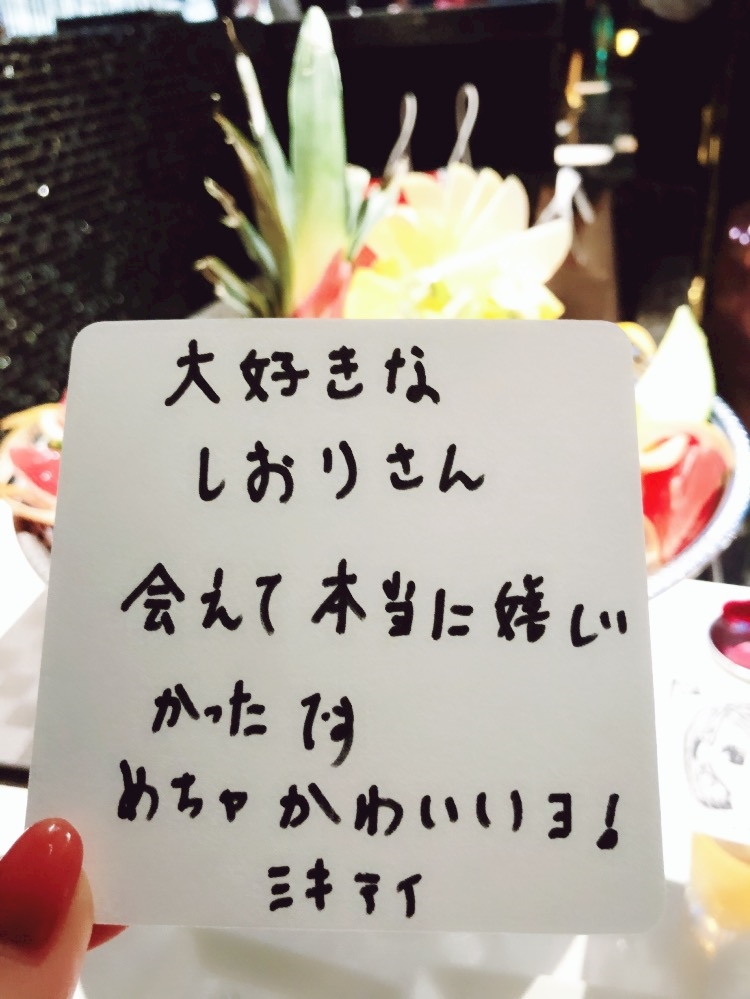 大好きな
しおりさん
会えて本当に嬉しい
かったです
めちゃかわいいヨ!
ミキティ